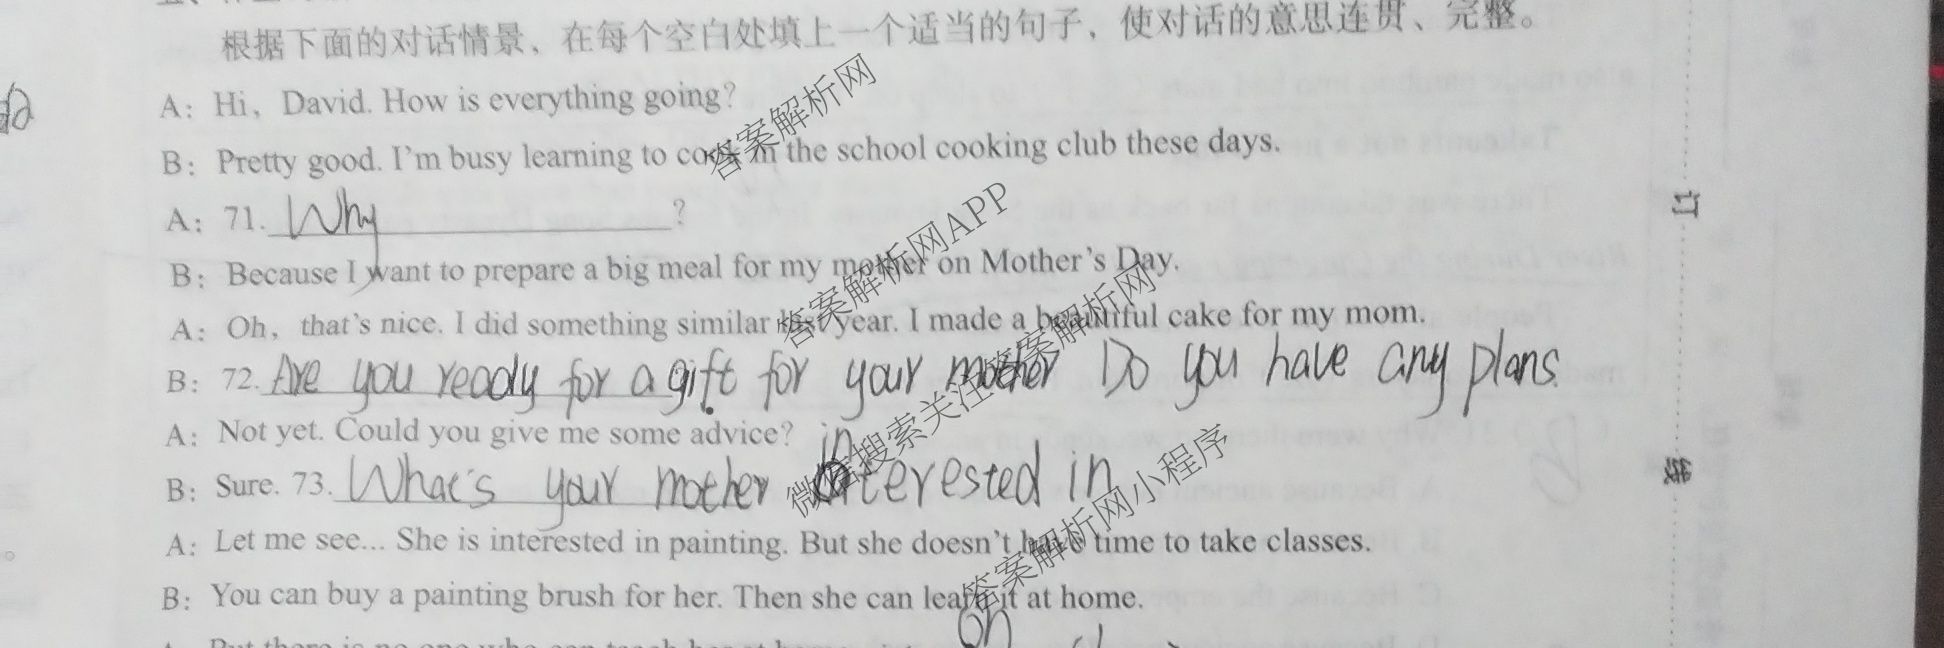 根据下面的对话情景，在每个空白处填上一个适当的句子，使对话的意思连贯、完整。
A：Hi，David. How is everything going?
B：Pretty good. I'm busy learning to cook in the school cooking club these days.
A：71. Why ?
B：Because I want to prepare a big meal for my mother on Mother's Day.
A：Oh，that's nice. I did something similar last year. I made a beautiful cake for my mom.
B：72. Are you ready for a gift for your mother Do you have any plans.
A：Not yet. Could you give me some advice?
B：Sure. 73. What's your mother interested in
in
A：Let me see... She is interested in painting. But she doesn't have time to take classes.
B：You can buy a painting brush for her. Then she can learn it at home.
on
答案解析网
答案解析网APP
微信搜索关注答案解析网
答案解析网小程序
订
线